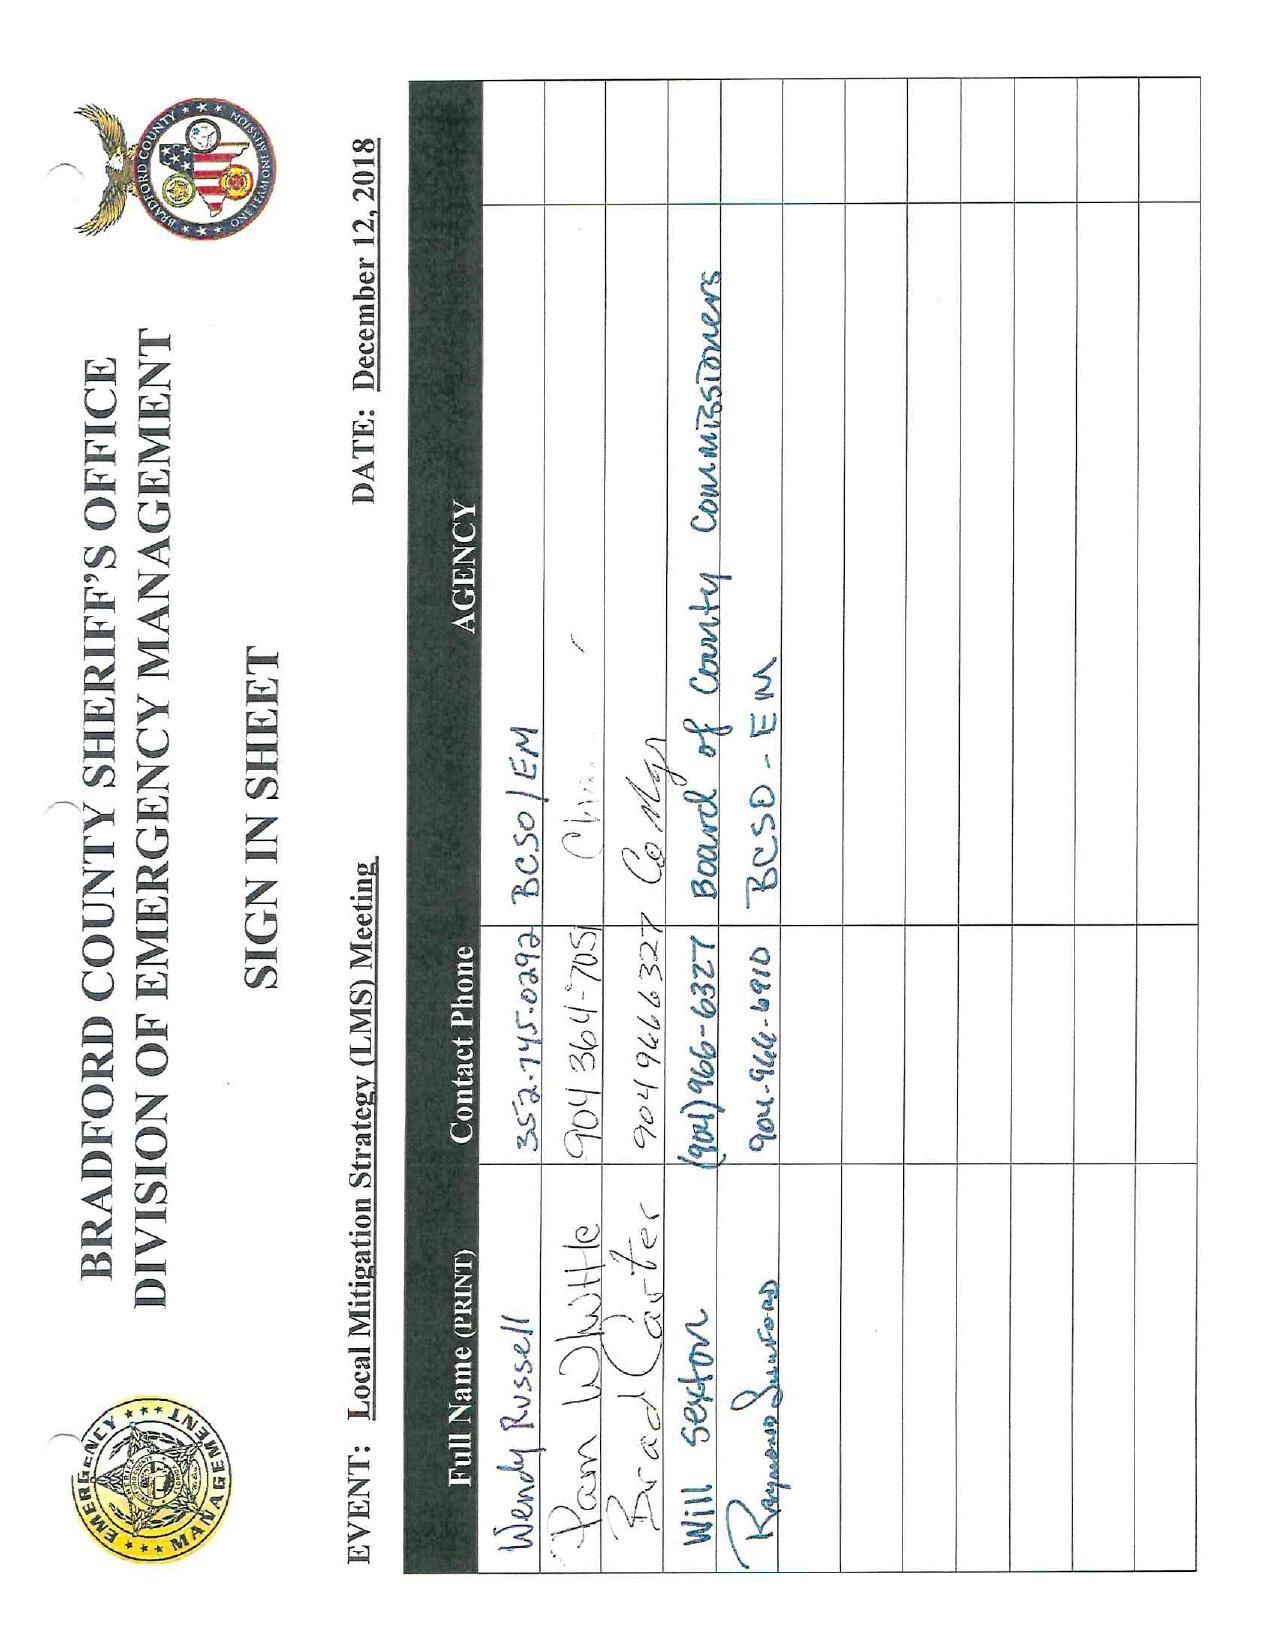 BRADFORD COUNTY SHERIFF'S OFFICE
DIVISION OF EMERGENCY MANAGEMENT
SIGN IN SHEET
EMERGENCY MANAGEMENT
BRADFORD COUNTY
ONE TEAM ONE MISSION
EVENT: Local Mitigation Strategy (LMS) Meeting DATE: December 12, 2018
Full Name (PRINT) Contact Phone AGENCY
Wendy Russell 352-745-0292 BCSO/EM
Pam Whittle 904 364-7051
Brad Carter 904 966 6327 Co Mgr
Will Sexton (904) 966-6327 Board of County Commissioners
Raymond 904-966-6910 BCSO-EM